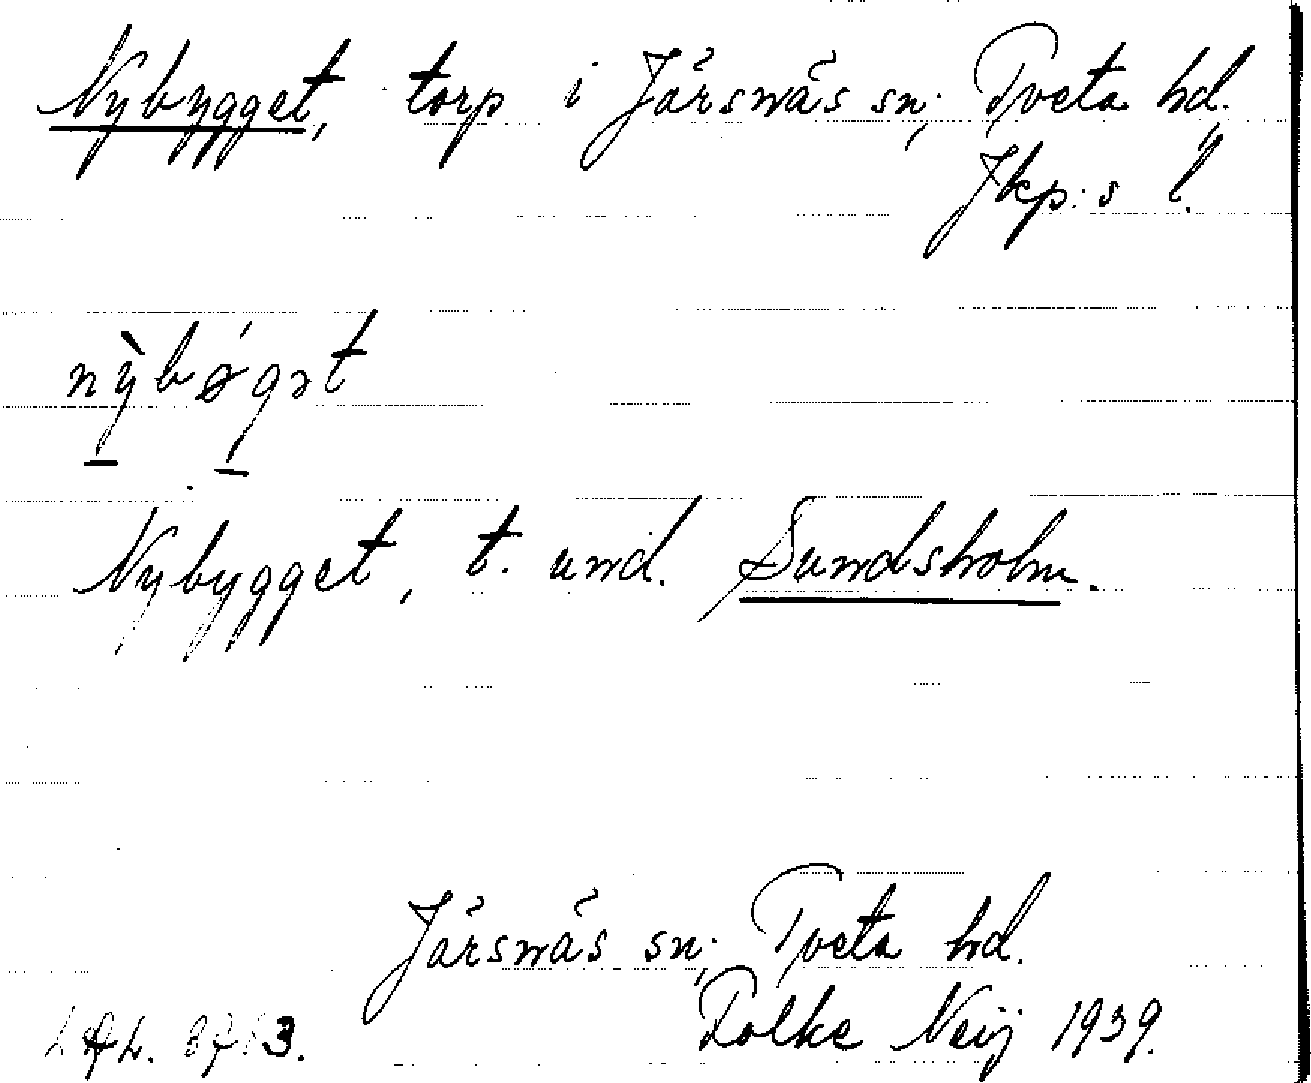 Nybygget, torp i Järsnäs sn; Tveta hd.
Jkp:s l.
nỳbǿgət
Nybygget, t. und. Sundsholm.
Järsnäs sn; Tveta hd.
Folke Neij 1939.